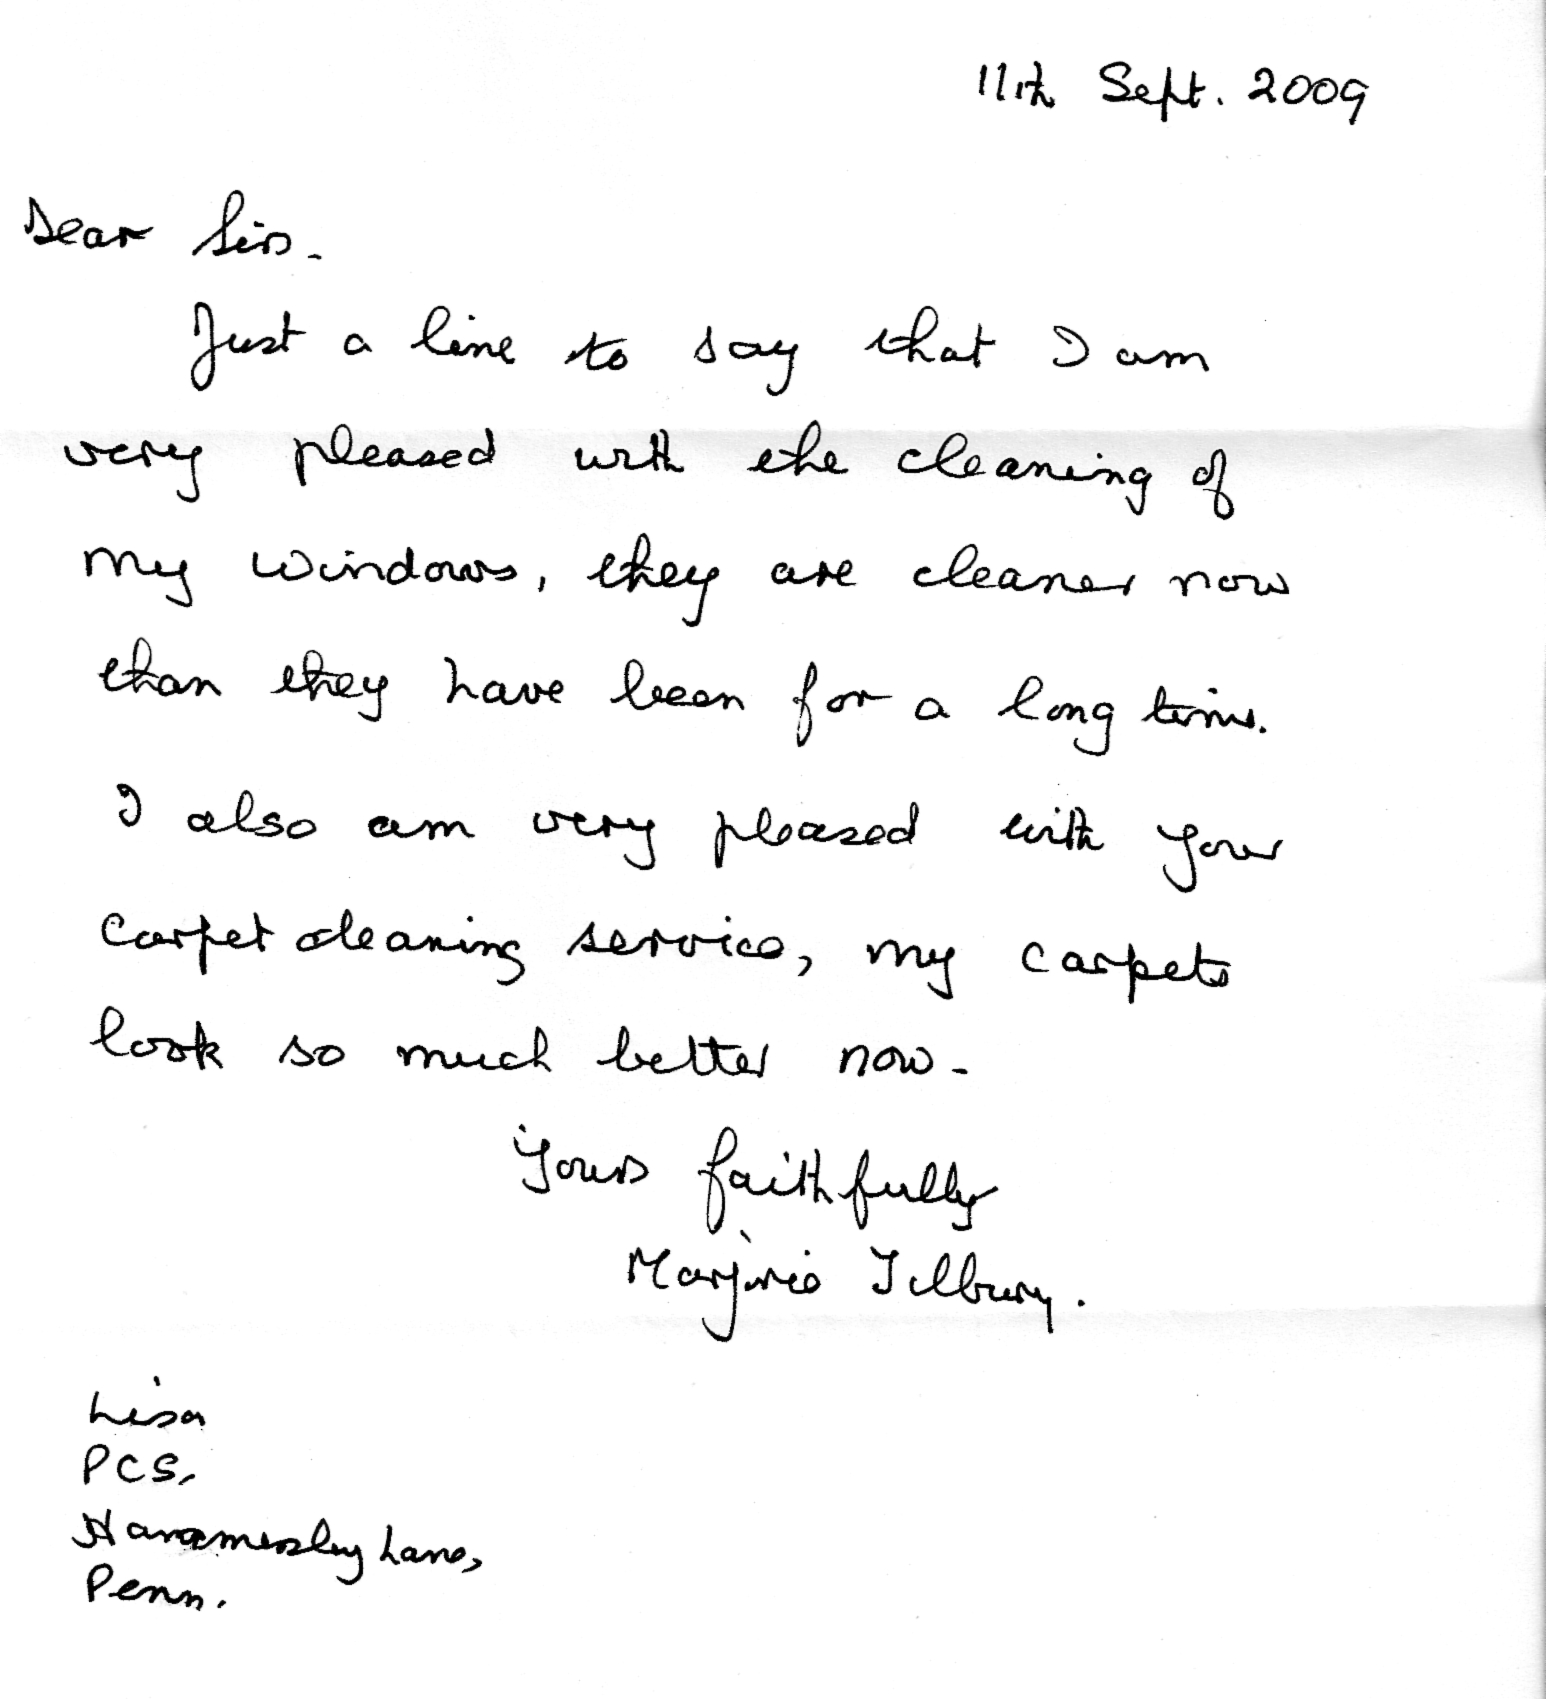 11th Sept. 2009
Dear Sirs.
Just a line to say that I am
very pleased with the cleaning of
my windows, they are cleaner now
than they have been for a long time.
I also am very pleased with your
carpet cleaning service, my carpets
look so much better now.
Yours faithfully
Marjorie Tilbury.
Lisa
PCS,
Lane,
Penn.